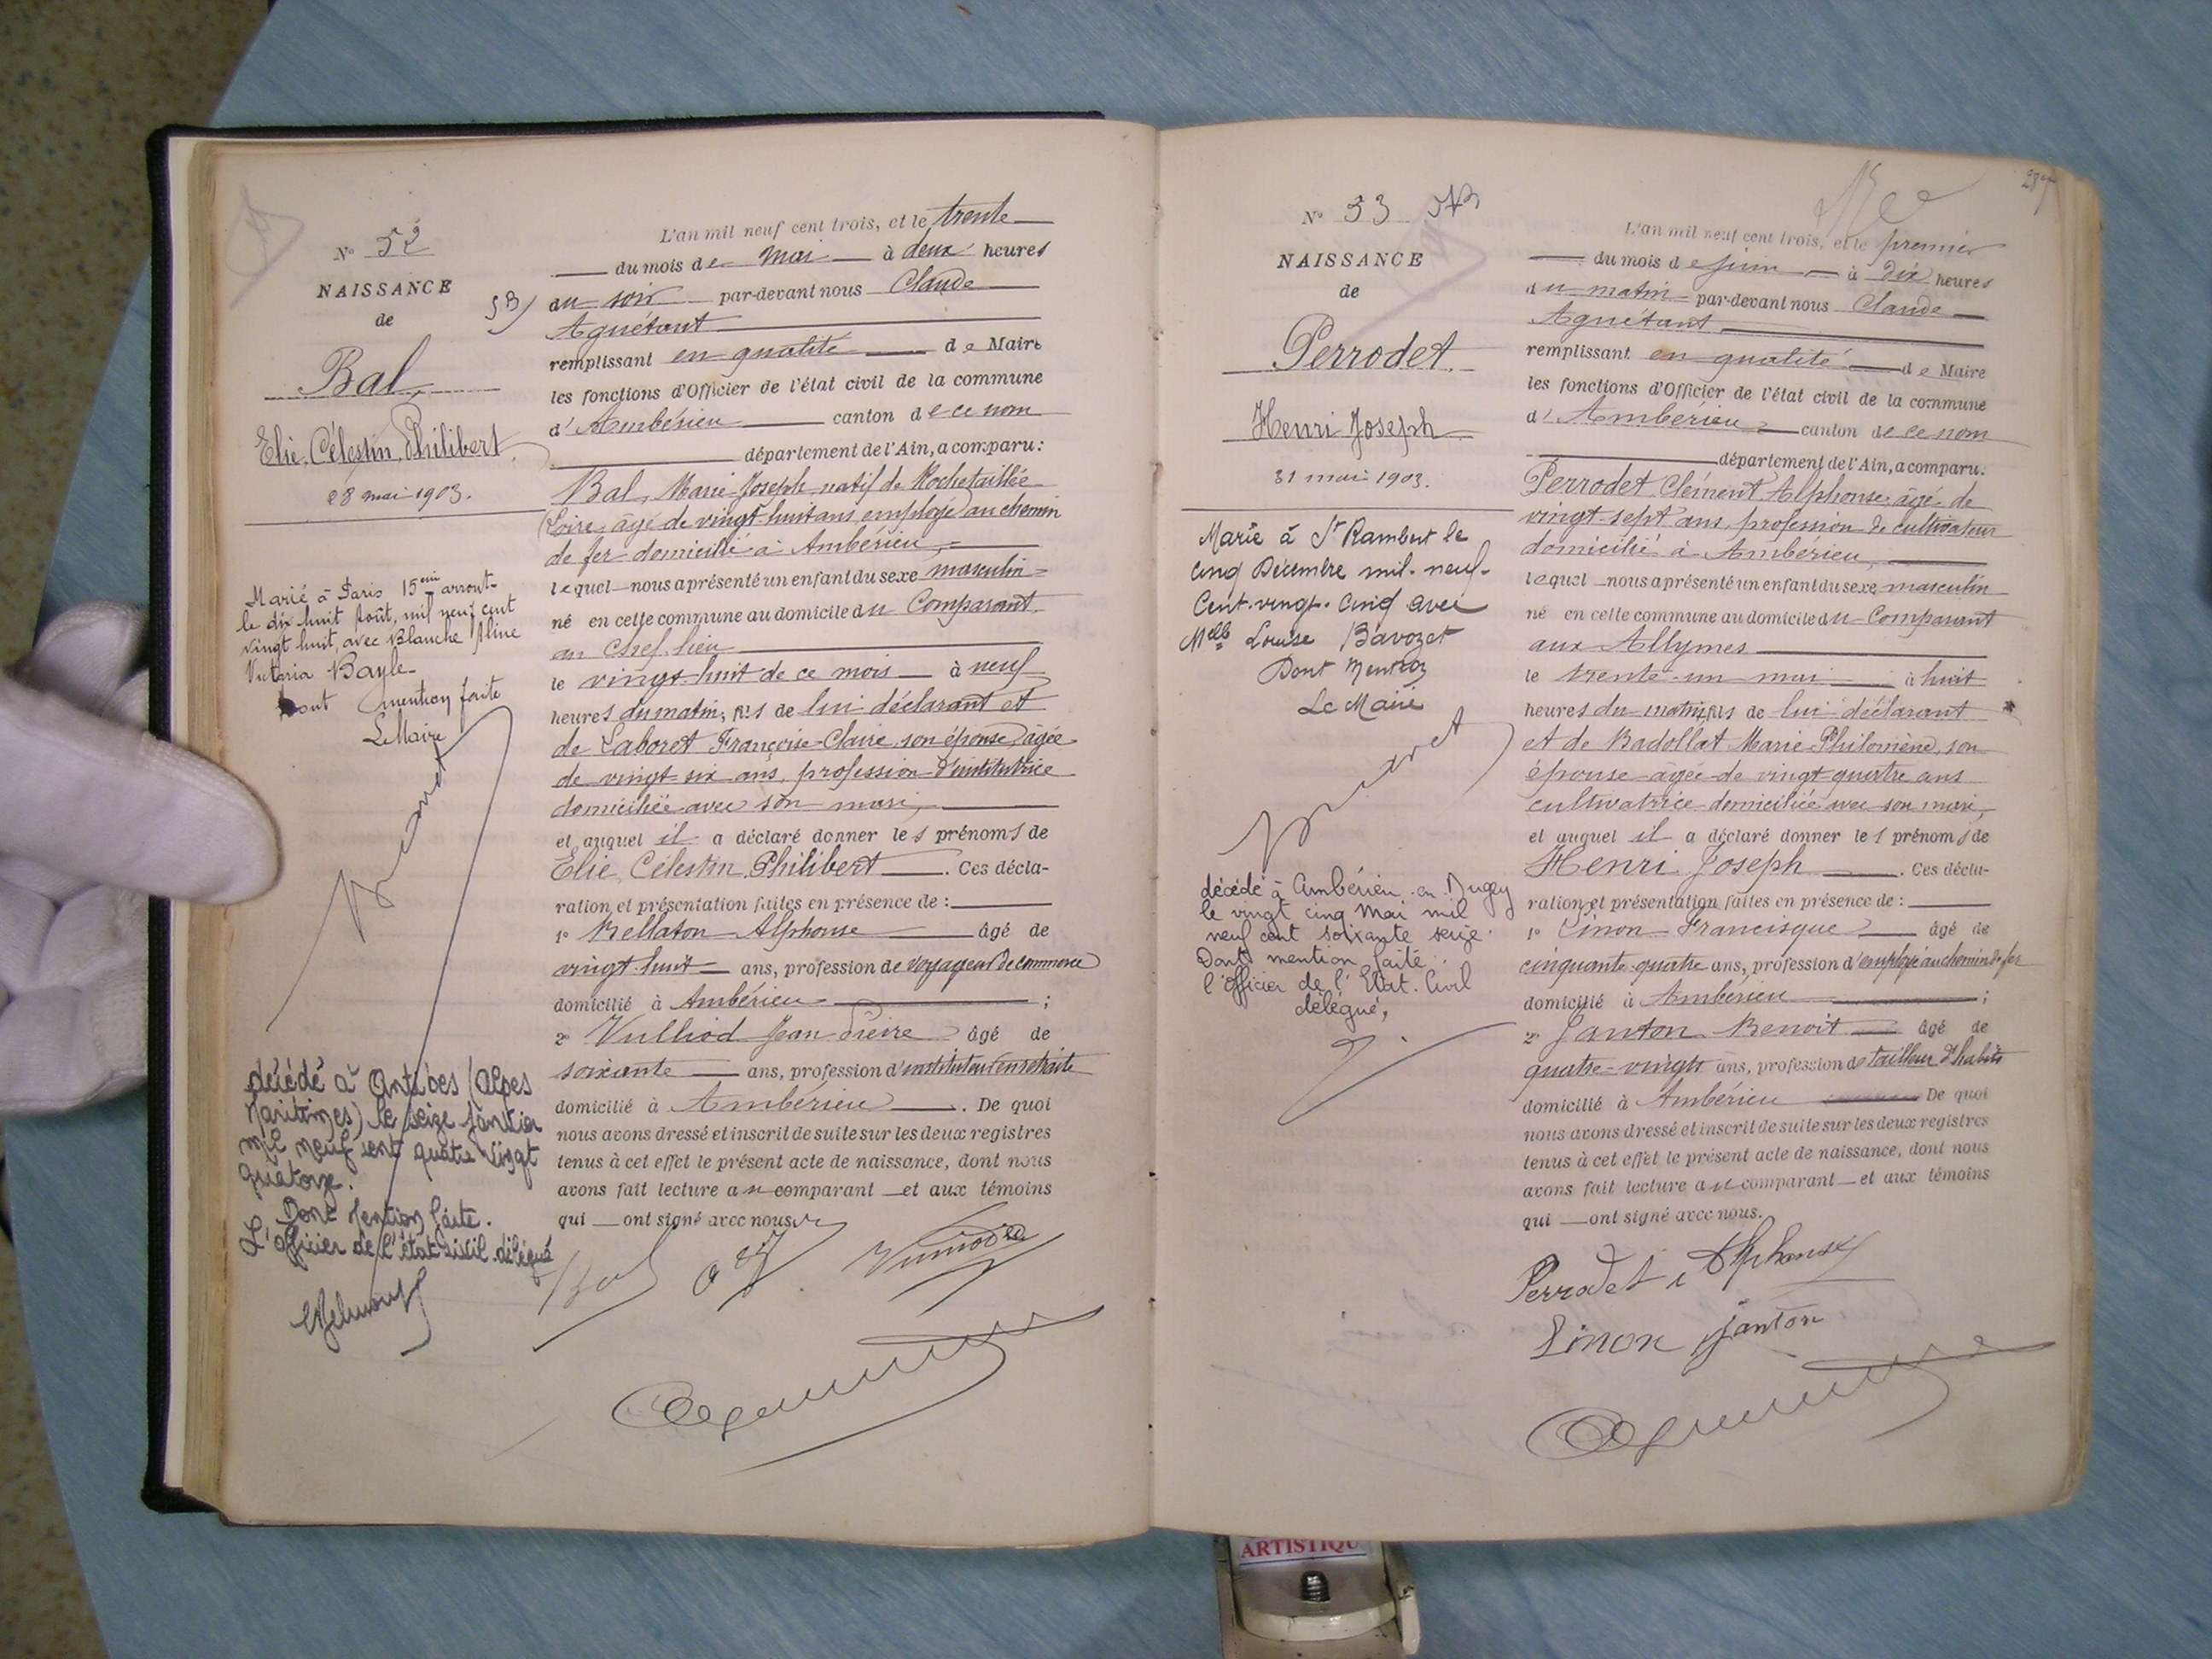 N° 52
NAISSANCE
de
Bal,
Elie, Célestin, Philibert
28 mai 1903.
Marié à Paris 15eme arront-
le dix huit Août, mil neuf cent
vingt huit, avec Blanche Aline
Victoria Bayle
Dont mention faite
Le Maire
décédé à Antibes (Alpes
Maritimes) le seize Janvier
mil neuf cent quatre vingt
quatorze.
Dont Mention faite.
L'officier de l'état civil délégué
L'an mil neuf cent trois, et le trente
du mois de Mai à deux heures
du soir par-devant nous Claude
Aguétant
remplissant en qualité de Maire
les fonctions d'Officier de l'état civil de la commune
d'Ambérieu canton de ce nom
département de l'Ain, a comparu:
Bal, Marie Joseph natif de Rochetaillée
(Loire, âgé de vingt-huit ans, employé au chemin
de fer domicilié à Ambérieu,
lequel nous a présenté un enfant du sexe masculin
né en cette commune au domicile du Comparant
au Chef-lieu
le vingt-huit de ce mois à neuf
heures du matin; fils de lui déclarant et
de Laboret Françoise-Claire, son épouse, âgée
de vingt-six ans, profession d'institutrice
domiciliée avec son mari,
et auquel il a déclaré donner les prénoms de
Elie, Célestin, Philibert. Ces décla-
ration et présentation faites en présence de :
1° Rellaton Alphonse âgé de
vingt-huit ans, profession de voyageur de commerce
domicilié à Ambérieu ;
2° Vulliod Jean Pierre âgé de
soixante ans, profession d'instituteur en retraite
domicilié à Ambérieu. De quoi
nous avons dressé et inscrit de suite sur les deux registres
tenus à cet effet le présent acte de naissance, dont nous
avons fait lecture au comparant et aux témoins
qui ont signé avec nous.
Bal
Vulliod
N° 53
NAISSANCE
de
Perrodet.
Henri Joseph
31 mai 1903.
Marié à St Rambert le
cinq Décembre mil-neuf-
Cent-vingt-cinq avec
Melle Louise Bavozet
Dont Mention
Le Maire
décédé à Ambérieu-en-Bugey
le vingt cinq Mai mil
neuf cent soixante seize.
Dont mention faite.
l'Officier de l'Etat-Civil
délégué,
287
L'an mil neuf cent trois, et le premier
du mois de juin à dix heures
du matin par-devant nous Claude
Aguétant
remplissant en qualité de Maire
les fonctions d'Officier de l'état civil de la commune
d'Ambérieu canton de ce nom
département de l'Ain, a comparu.
Perrodet, Clément Alphonse, âgé de
vingt-sept ans, profession de cultivateur
domicilié à Ambérieu,
lequel nous a présenté un enfant du sexe masculin
né en cette commune au domicile du Comparant
aux Allymes
le trente-un mai à huit
heures du matin fils de lui déclarant
et de Badollat Marie-Philomène, son
épouse âgée de vingt-quatre ans
cultivatrice domiciliée avec son mari,
et auquel il a déclaré donner les prénoms de
Henri Joseph. Ces décla-
ration et présentation faites en présence de :
1° Linon Francisque âgé de
cinquante-quatre ans, profession d'employé au chemin de fer
domicilié à Ambérieu ;
2° Janton Benoit âgé de
quatre-vingts ans, profession de tailleur d'habits
domicilié à Ambérieu De quoi
nous avons dressé et inscrit de suite sur les deux registres
tenus à cet effet le présent acte de naissance, dont nous
avons fait lecture au comparant et aux témoins
qui ont signé avec nous.
Perrodet Alphonse
Linon Janton
ARTISTIQU